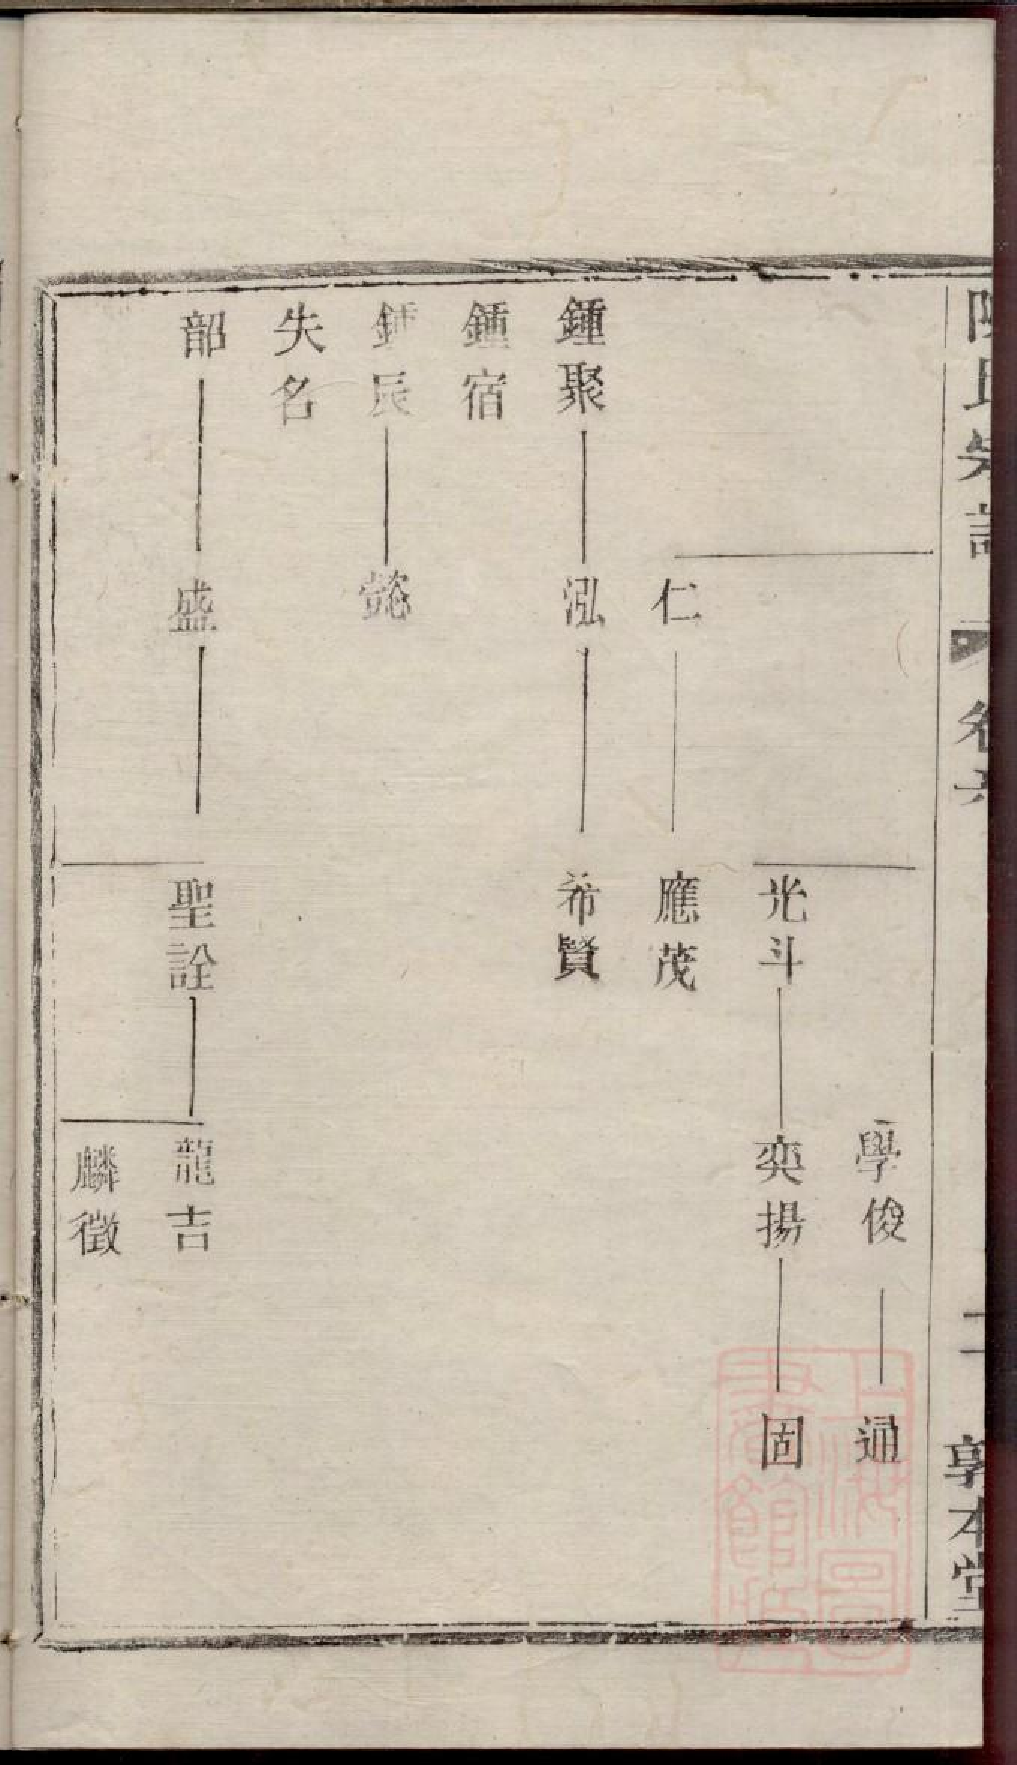 陳氏宗譜
卷六
二
敦本堂
學俊
通
光斗
奕揚
固
仁
應茂
鍾聚
泓
希賢
鍾宿
鍾辰
懿
失名
韶
盛
聖詮
龍吉
麟徵
上海圖
書館藏